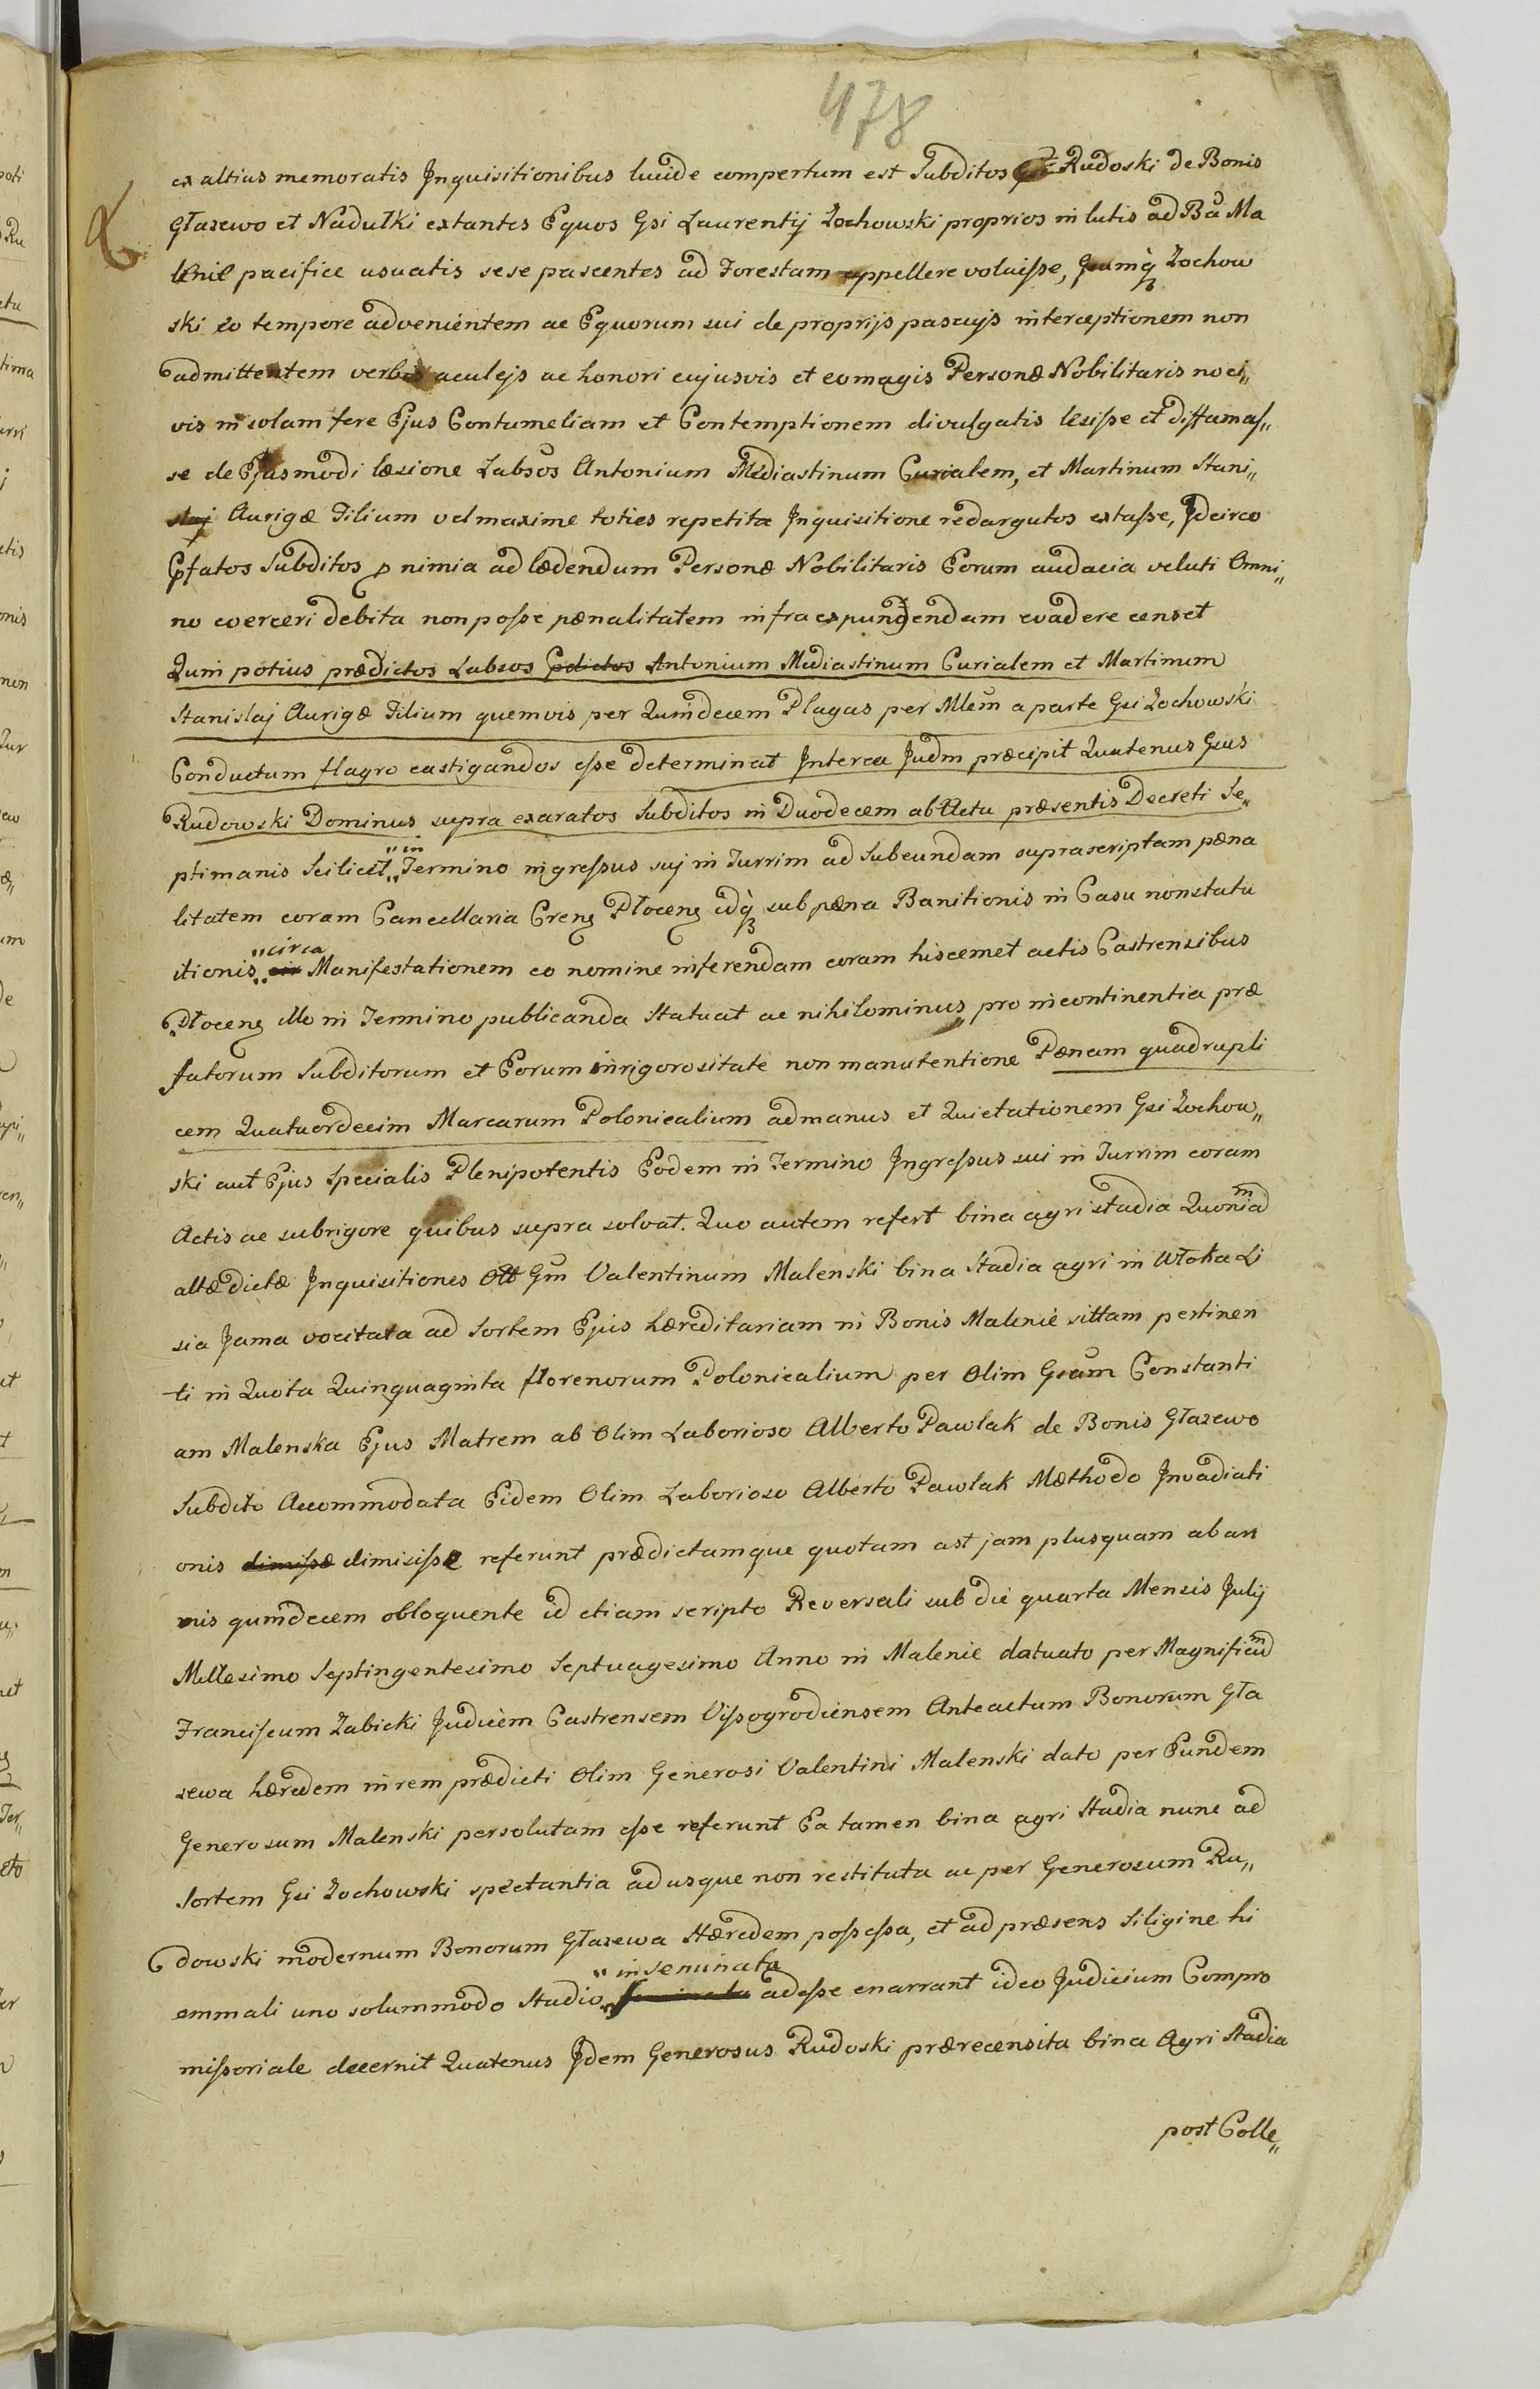 478
ex altius memoratis Inquisitionibus lucide compertum est Subditos Gsi Rudoski de Bonis
Głazewo et Nadułki extantes Equos Gsi Laurentij Zochowski proprios in lutis ad Bã Ma
lenie pacifice usuatis sese pascentes ad Forestam appellere voluisse, Gsumq̀ Zochow
ski eo tempore advenientem ac Equorum sui de proprijs pascujs interceptionem non
admittentem verbis aculejs ac honori cujusvis et eo magis Personæ Nobilitaris noci„
vis in solam fere Ejus Contumeliam et Contemptionem divulgatis lesisse et diffamas„
se de Ejusmodi læsione Labsos Antonium Mediastinum Curialem, et Martinum Stani„
slaj Aurigæ Filium vel maxime toties repetita Inquisitione redargutos extasse, Idcirco
Ppfatos Subditos p nimia ad lædendum Personæ Nobilitaris Eorum audacia veluti Omni„
no coerceri debita non posse pænalitatem infra expungendam evadere censet
Quin potius prædictos Labsos Ppdictos Antonium Mediastinum Curialem et Martinum
Stanislaj Aurigæ Filium quemvis per Quindecem Plagas per Mlem a parte Gsi Zochowski
Conductum flagro castigandos esse determinat Interea Judm præcipit Quatenus Gsus
Rudowski Dominus supra exaratos Subditos in Duodecem ab Actu præsentis Decreti Se„
ptimanis Scilicet „in Termino ingressus suj in Turrim ad Subeundam suprascriptam pæna
litatem coram Cancellaria Creng Płoceng idq̀ sub pæna Banitionis in Casu nonstatu
itionis „circa Manifestationem eo nomine inferendam coram hiscemet actis Castrensibus
Płoceng illo in Termino publicanda Statuat ac nihilominus pro incontinentia præ
fatorum Subditorum et Eorum in rigorositate non manutentione Pænam quadrupli
cem Quatuordecim Marcarum Polonicalium ad manus et Quietationem Gsi Zochow„
ski aut Ejus Specialis Plenipotentis Eodem in Termino Ingressus sui in Turrim coram
Actis ac sub rigore quibus supra solvat. Quo autem refert bina agri stadia Quoniam
altæ dictæ Inquisitiones Gm Valentinum Malenski bina Stadia agri in Włoka Li
sia Jama vocitata ad Sortem Ejus hæreditariam in Bonis Malenie sittam pertinen
ti in Quota Quinquaginta florenorum Polonicalium per Olim Gsam Constanti
am Malenska Ejus Matrem ab Olim Laborioso Alberto Pawlak de Bonis Głazewo
Subdito Accommodata Eidem Olim Laborioso Alberto Pawlak Mæthodo Invadiati
onis dimissæ dimisisse referunt prædictamque quotam ast jam plusquam ab an
nis quindecem obloquente id etiam scripto Reversali sub die quarta Mensis Julij
Millesimo Septingentesimo Septuagesimo Anno in Malenie datuato per Magnificum
Franciscum Zabicki Judicem Castrensem Vissogrodiensem Anteactum Bonorum Gła
zewa hæredem in rem prædicti Olim Generosi Valentini Malenski dato per Eundem
Generosum Malenski persolutam esse referunt Ea tamen bina agri Stadia nunc ad
Sortem Gsi Zochowski spectantia ad usque non restituta ac per Generosum Ru„
dowski modernum Bonorum Głazewa Hæredem possessa, et ad præsens Siligine hi
emmali uno solummodo Stadio „inseminata adesse enarrant ideo Judicium Compro
missoriale decernit Quatenus Idem Generosus Rudoski prærecensita bina Agri Stadia
post Colle„